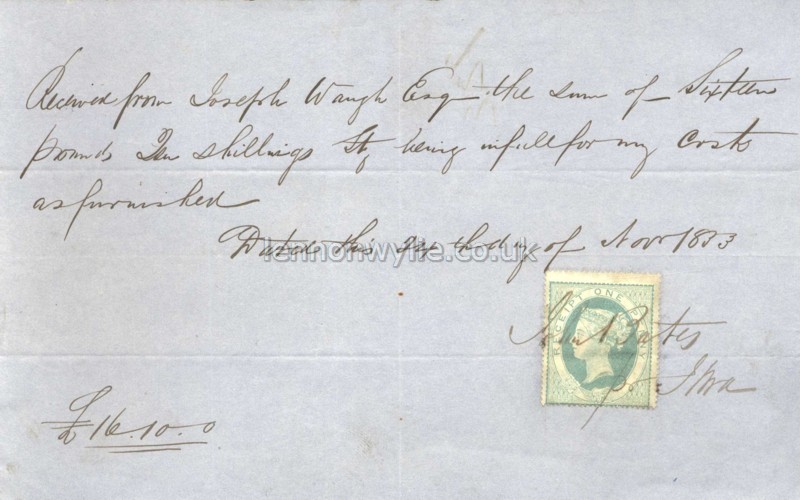 Received from Joseph Waugh Esq the sum of Sixteen
pounds Ten shillings Stg being in full for my Costs
as furnished
Dated this 24th day of Novr 1853
lennonwylie.co.uk
RECEIPT ONE PENNY
Bates
£16.10.0